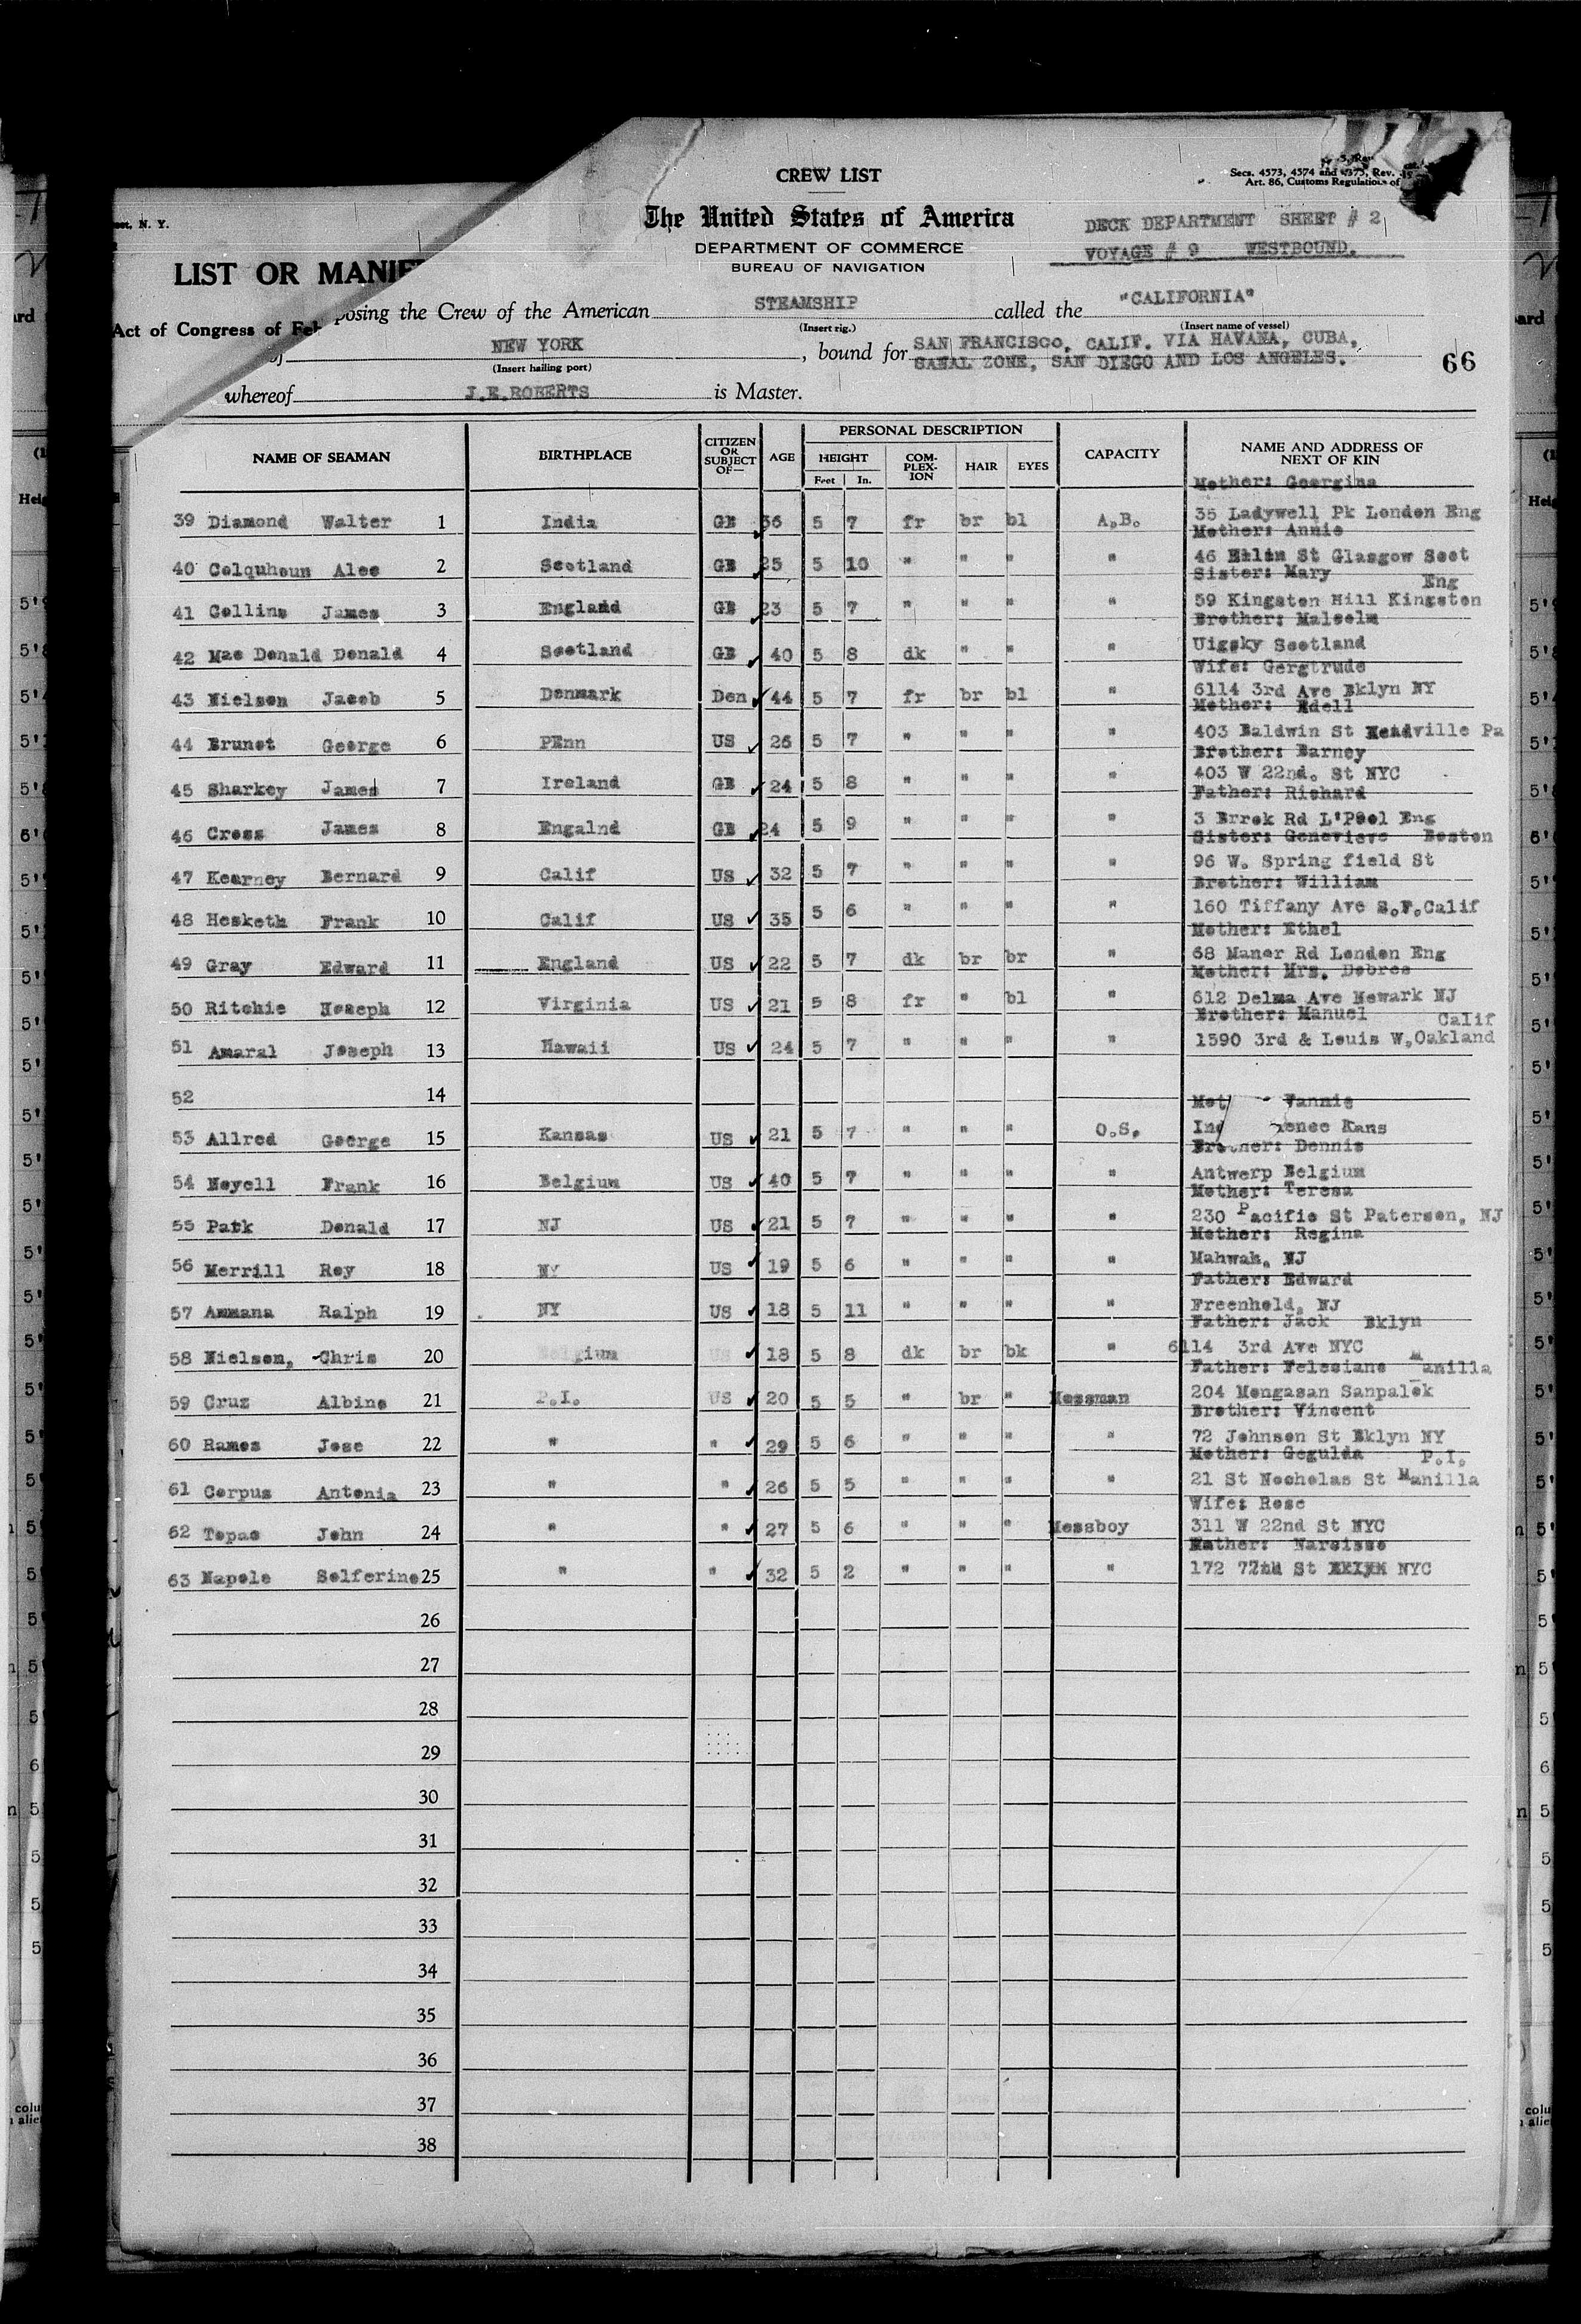 CREW LIST
Secs. 4573, 4574 and 4375, Rev.
Art. 86, Customs Regulations of
The United States of America
DECK DEPARTMENT SHEET # 2
DEPARTMENT OF COMMERCE
VOYAGE # 9 WESTBOUND.
BUREAU OF NAVIGATION
N. Y.
LIST OR MANIF
Act of Congress of Feb
posing the Crew of the American STEAMSHIP called the "CALIFORNIA"
(Insert rig.) (Insert name of vessel)
of NEW YORK , bound for SAN FRANCISCO, CALIF. VIA HAVANA, CUBA,
(Insert hailing port) CANAL ZONE, SAN DIEGO AND LOS ANGELES.
66
whereof J.E.ROBERTS is Master.
NAME OF SEAMAN BIRTHPLACE CITIZEN OR SUBJECT OF— AGE PERSONAL DESCRIPTION CAPACITY NAME AND ADDRESS OF NEXT OF KIN
HEIGHT COM-PLEX-ION HAIR EYES
Feet In.
Mother: Georgina
39 Diamond Walter 1 India GB 36 5 7 fr br bl A.B. 35 Ladywell Pk London Eng
Mother: Annie
40 Colquhoun Alec 2 Scotland GB 25 5 10 " " " " 46 St Glasgow Scot
Sister: Mary Eng
41 Collins James 3 England GB 23 5 7 " " " " 59 Kingston Hill Kingston
Brother: Malcolm
42 Mac Donald Donald 4 Scotland GB 40 5 8 dk " " " Uigsky Scotland
Wife: Gergtrude
43 Nielson Jacob 5 Denmark Den 44 5 7 fr br bl " 6114 3rd Ave Bklyn NY
Mother: Edell
44 Brunot George 6 PEnn US 26 5 7 " " " " 403 Baldwin St Meadville Pa
Brother: Barney
45 Sharkey James 7 Ireland GB 24 5 8 " " " " 403 W 22nd. St NYC
Father: Richard
46 Cross James 8 Engalnd GB 24 5 9 " " " " 3 Errok Rd L'Pool Eng
Sister: Genevieve Boston
47 Kearney Bernard 9 Calif US 32 5 7 " " " " 96 W. Spring field St
Brother: William
48 Hesketh Frank 10 Calif US 35 5 6 " " " " 160 Tiffany Ave S.F.Calif
Mother: Ethel
49 Gray Edward 11 England US 22 5 7 dk br br " 68 Manor Rd London Eng
Mother: Mrs. Dobros
50 Ritchie Hoseph 12 Virginia US 21 5 8 fr " bl " 612 Delma Ave Newark NJ
Brother: Manuel Calif
51 Amaral Joseph 13 Hawaii US 24 5 7 " " " " 1590 3rd & Louis W.Oakland
52 14
Mot Fannie
53 Allred George 15 Kansas US 21 5 7 " " " O.S. Ind Kans
Brother: Dennis
54 Noyell Frank 16 Belgium US 40 5 7 " " " " Antwerp Belgium
Mother: Teresa
55 Park Donald 17 NJ US 21 5 7 " " " " 230 Pacific St Paterson, NJ
Mother: Regina
56 Merrill Roy 18 NY US 19 5 6 " " " " Mahwah, NJ
Father: Edward
57 Ammana Ralph 19 NY US 18 5 11 " " " " Freenhold, NJ
Father: Jack Bklyn
58 Nielson, Chris 20 Belgium US 18 5 8 dk br bk " 6114 3rd Ave NYC
Father: Felosiano Manilla
59 Cruz Albino 21 P.I. US 20 5 5 " br " Messman 204 Mongasan Sanpalok
Brother: Vincent
60 Ramos Jose 22 " " 29 5 6 " " " " 72 Johnson St Bklyn NY
Mother: Gegulda P.I.
61 Corpus Antonia 23 " " 26 5 5 " " " " 21 St Nocholas St Manilla
Wife: Rose
62 Topac John 24 " " 27 5 6 " " " Messboy 311 W 22nd St NYC
Father: Narcisso
63 Napole Solferino 25 " " 32 5 2 " " " " 172 77th St NYC
26
27
28
29
30
31
32
33
34
35
36
37
38